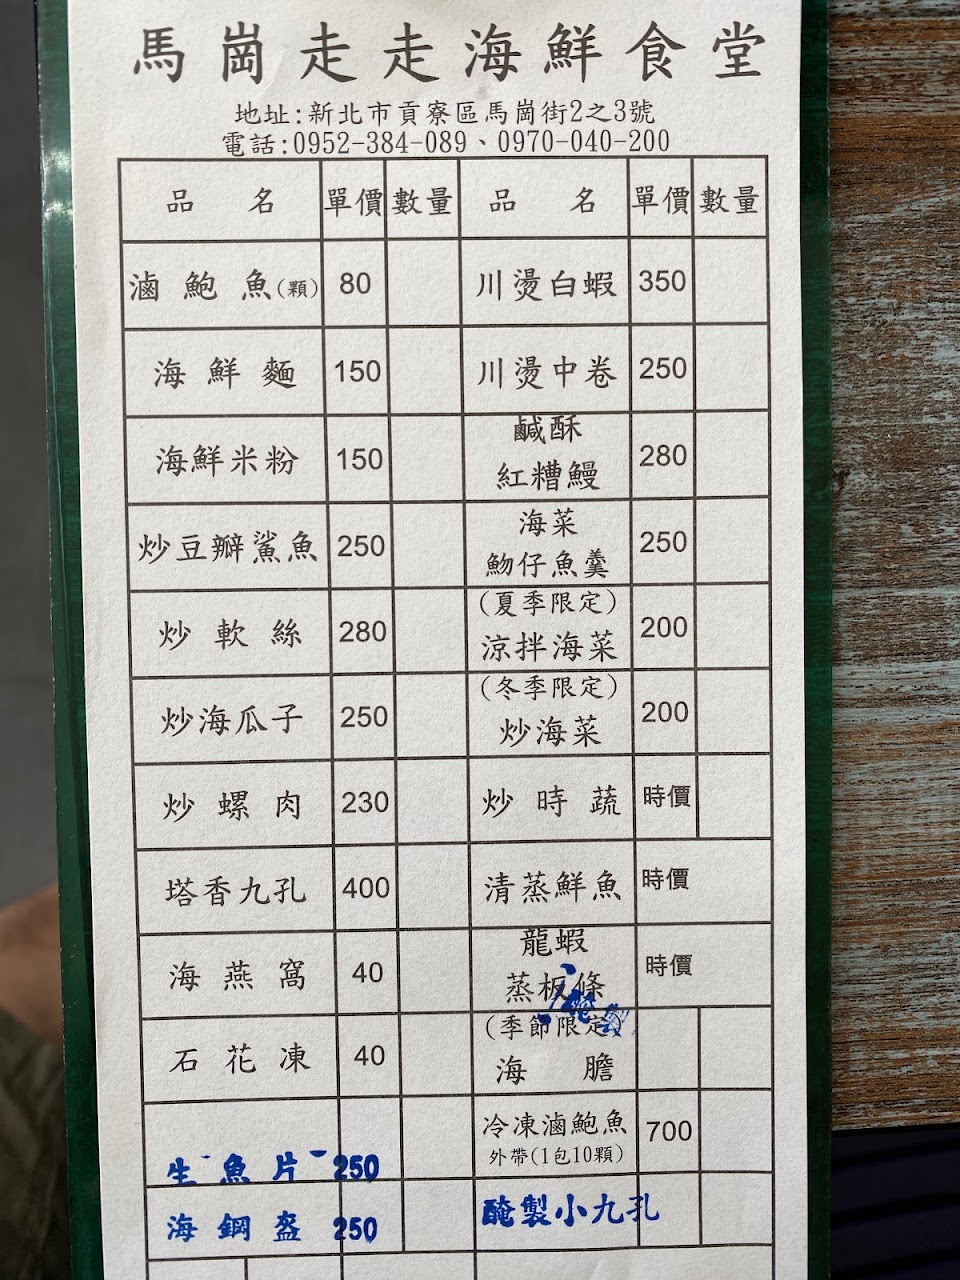 馬崗走走海鮮食堂
地址:新北市貢寮區馬崗街2之3號
電話:0952-384-089、0970-040-200
品名 單價 數量 品名 單價 數量
滷鮑魚(顆) 80
川燙白蝦 350
海鮮麵 150
川燙中卷 250
海鮮米粉 150
鹹酥
紅糟鰻 280
炒豆瓣鯊魚 250
海菜
魩仔魚羹 250
炒軟絲 280
(夏季限定)
涼拌海菜 200
炒海瓜子 250
(冬季限定)
炒海菜 200
炒螺肉 230
炒時蔬 時價
塔香九孔 400
清蒸鮮魚 時價
海燕窩 40
龍蝦
蒸板條 時價
石花凍 40
(季節限定
海膽
冷凍滷鮑魚 700
外帶(1包10顆)
生魚片 250
海鋼盔 250
醃製小九孔